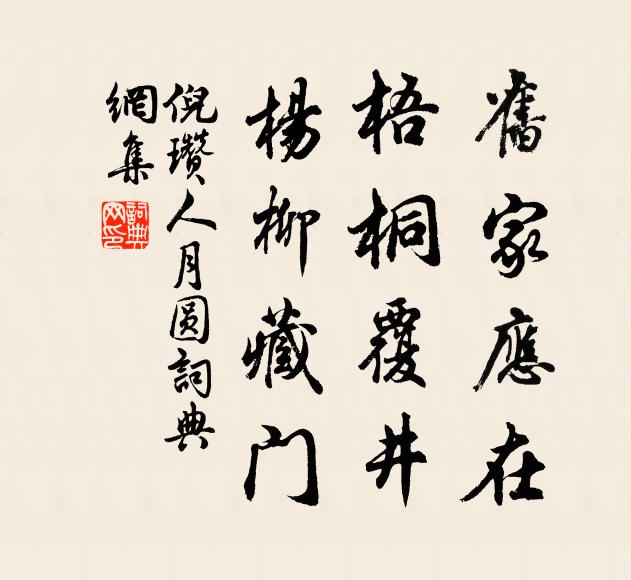 舊家應在
梧桐覆井
楊柳藏门
倪瓚人月圆詞典
網集
詞典
网印